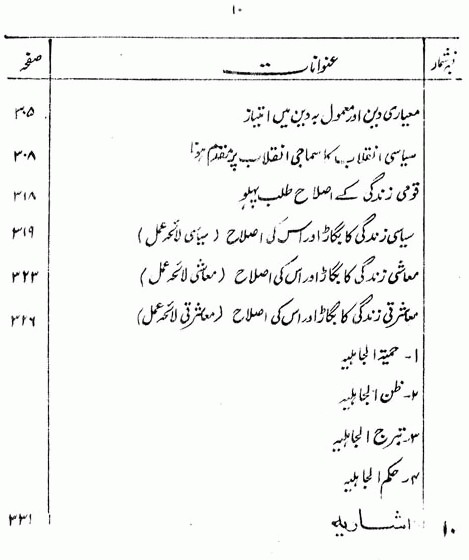 ۱۰
نمبر شمار عنوانات صفحہ
معیاری دین اور معمول بہ دین میں امتیاز ۳۰۵
سیاسی انقلاب کا سماجی انقلاب پر مقدم ہونا ۳۰۸
قومی زندگی کے اصلاح طلب پہلو ۳۱۸
سیاسی زندگی کا بگاڑ اور اس کی اصلاح (سیاسی لائحہ عمل) ۳۱۹
معاشی زندگی کا بگاڑ اور اس کی اصلاح (معاشی لائحہ عمل) ۳۲۳
معاشرتی زندگی کا بگاڑ اور اس کی اصلاح (معاشرتی لائحہ عمل) ۳۲۶
۱۔ حمیۃ الجاہلیہ
۲۔ ظن الجاہلیہ
۳۔ تبرج الجاہلیہ
۴۔ حکم الجاہلیہ
۱۰ اشاریہ ۳۳۱